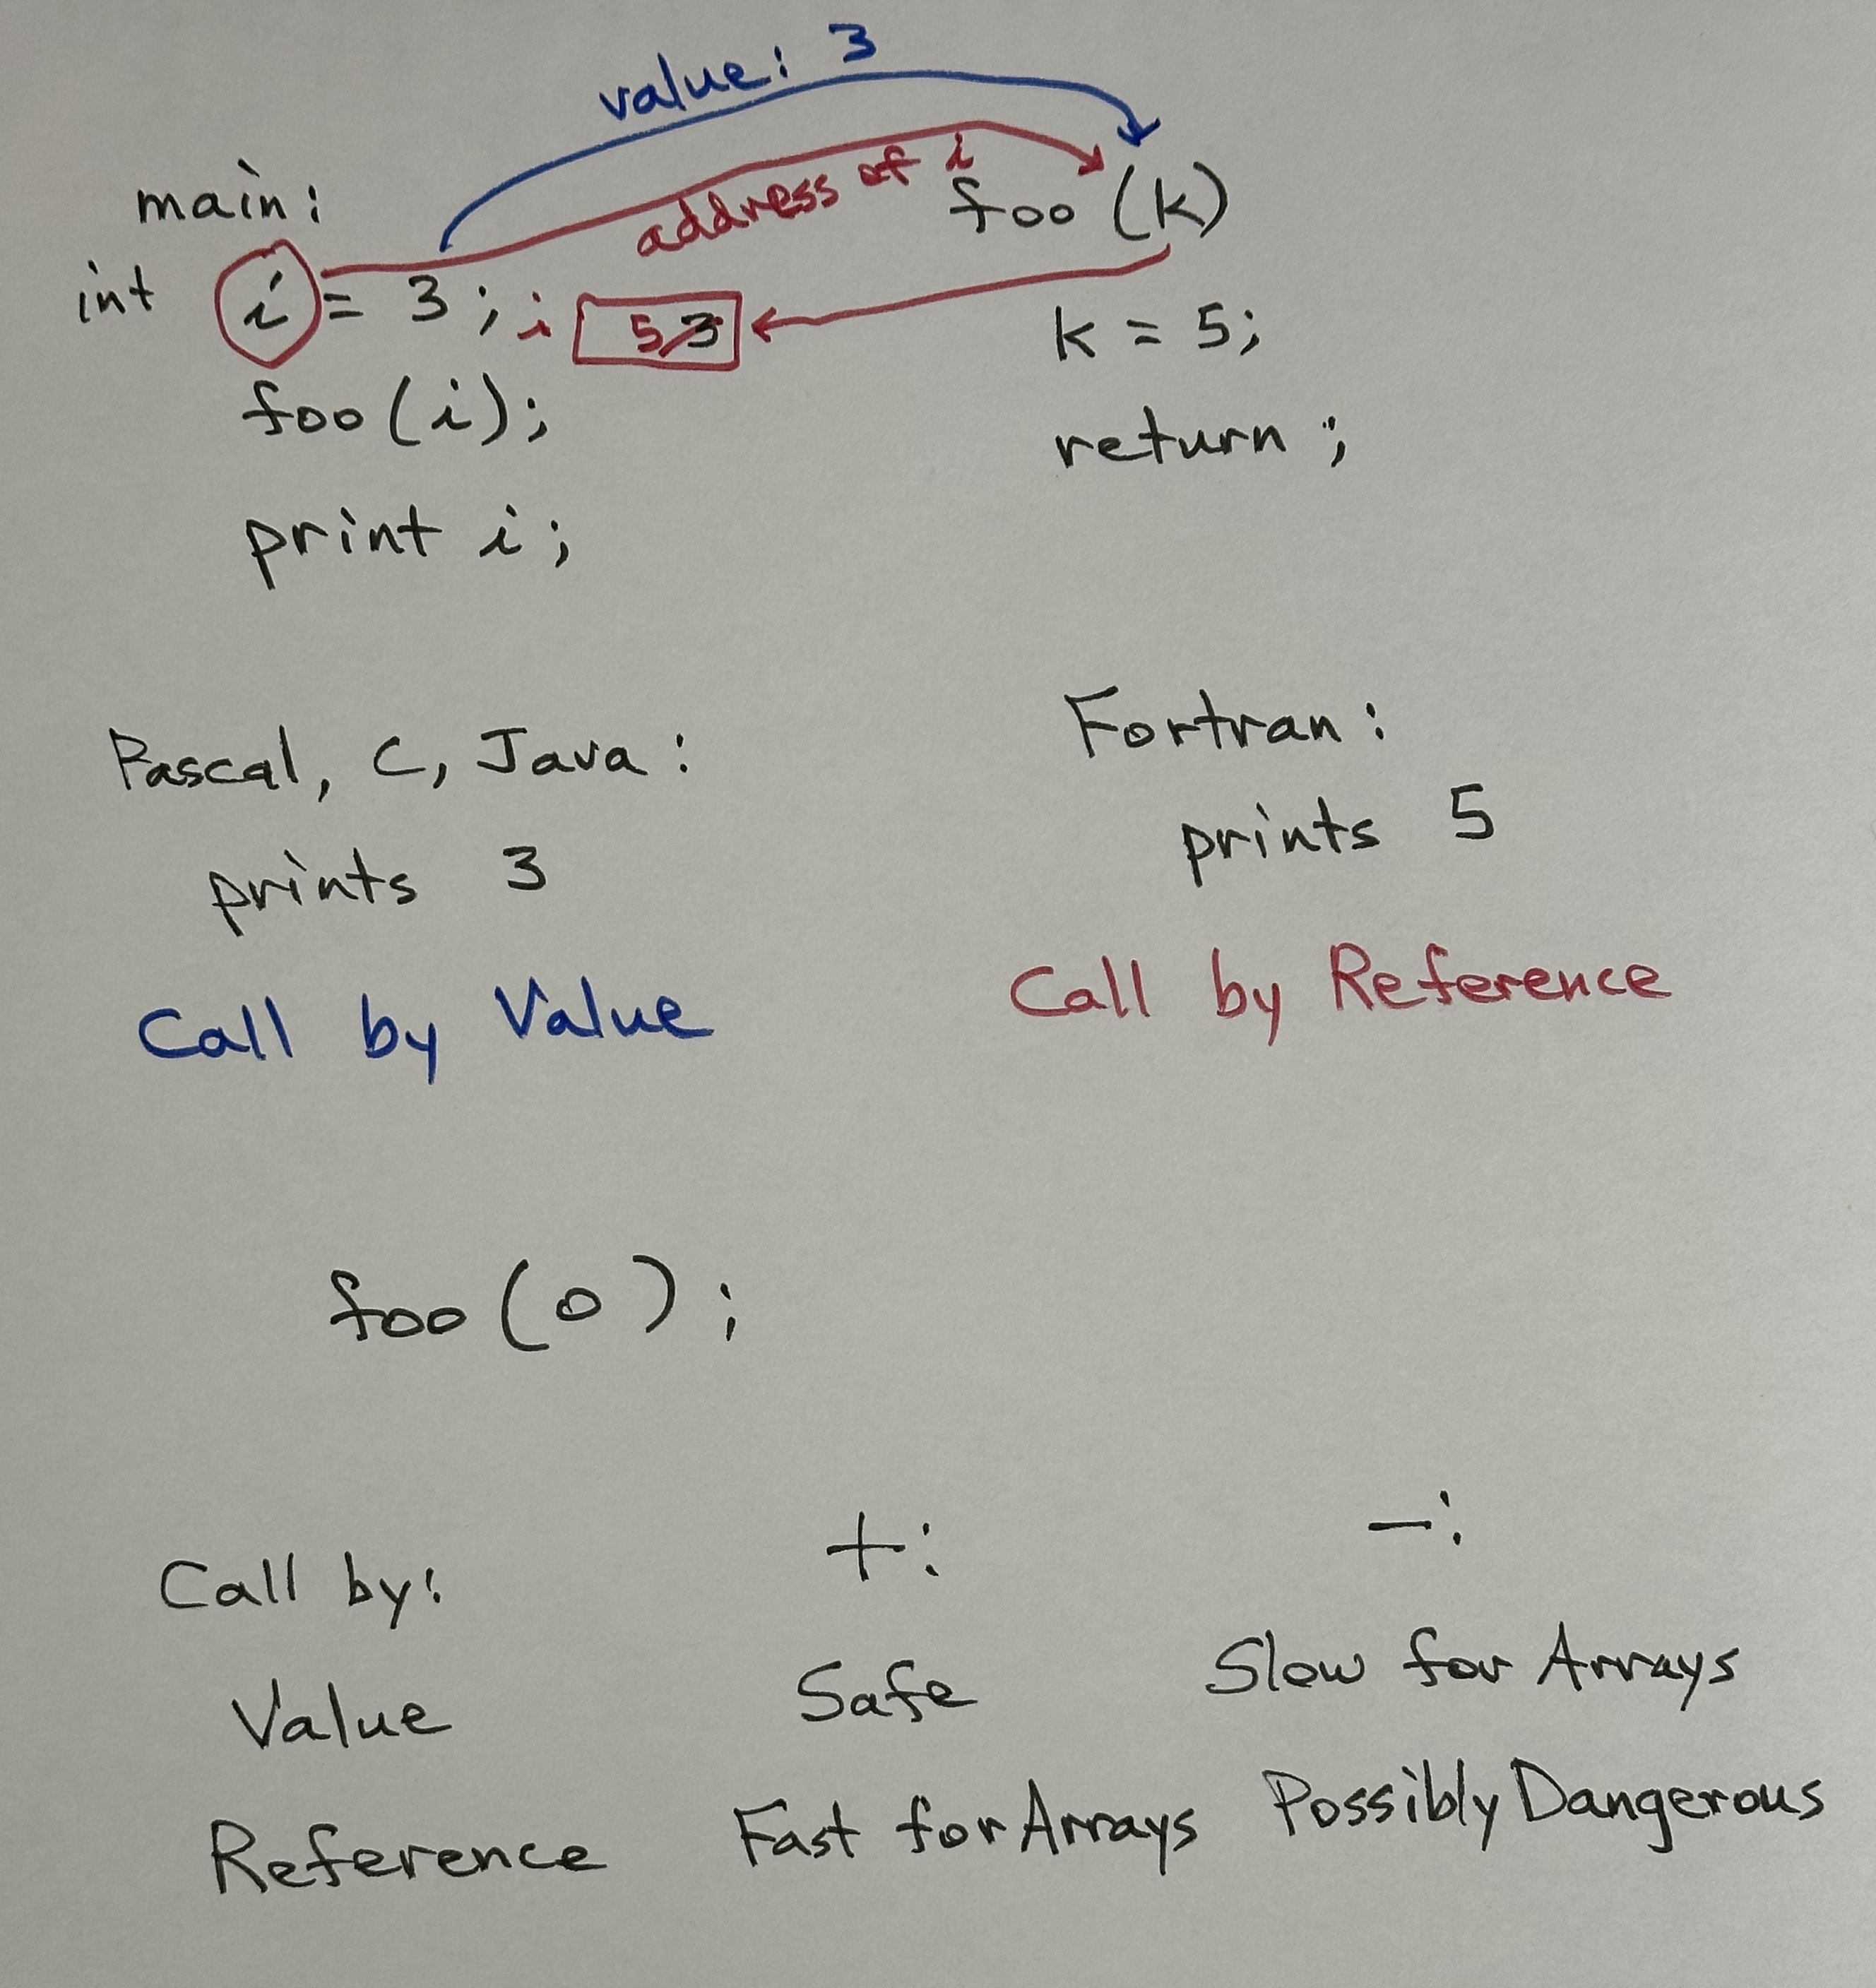 value: 3
address of i
main:
foo (k)
int i = 3 ; i 5 3
k = 5;
foo (i);
return ;
print i;
Pascal, C, Java :
Fortran :
prints 3
prints 5
Call by Value
Call by Reference
foo (0) ;
Call by: +: -:
Value Safe Slow for Arrays
Reference Fast for Arrays Possibly Dangerous